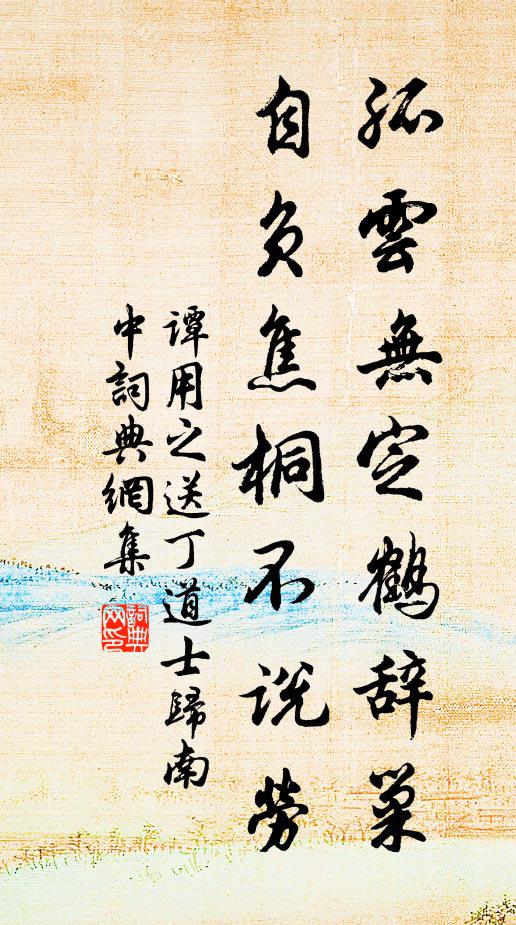 孤雲無定鶴辞巢
自負焦桐不説勞
譚用之送丁道士歸南
中詞典網集
詞典網印